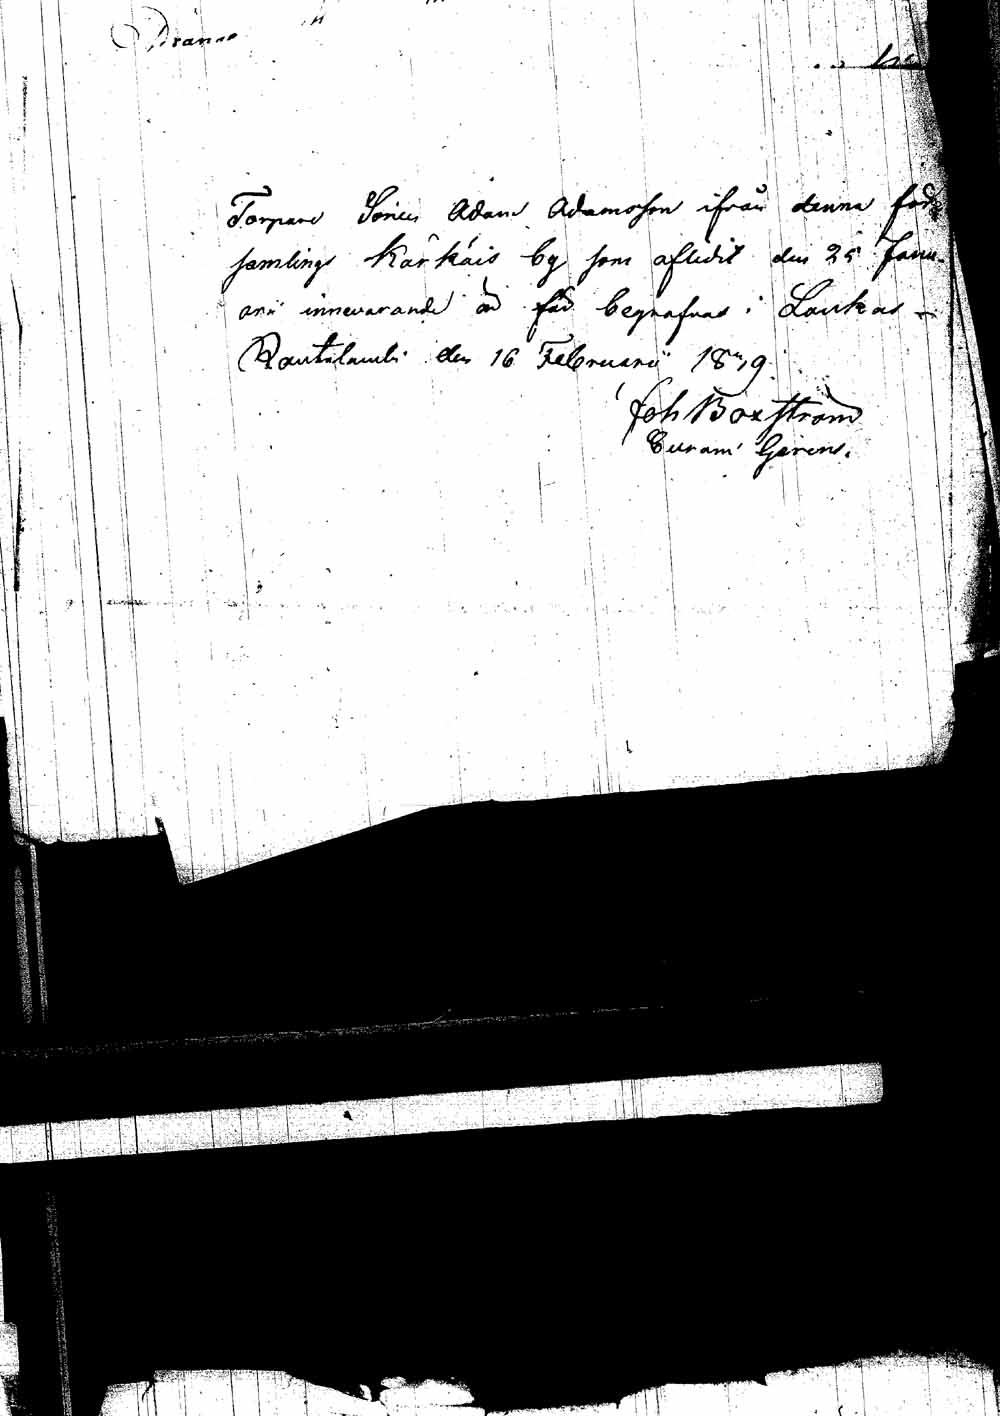 Torpare Sonen Adam Adamsson ifrån denna för-
samlings Kärkäis by som aflidit den 25 Janu-
arii innevarande år får begrafvas i Laukas –
Rautalambi den 16 Februarii 1879.
Joh Boxström
Curam Gerens.